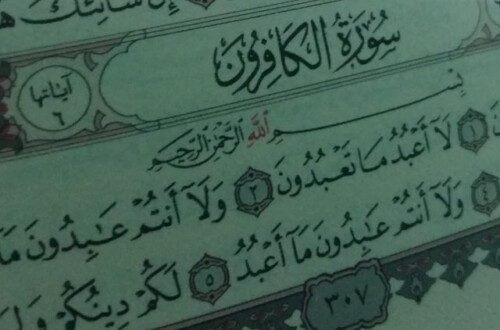 إِنَّ شَانِئَكَ هُ
سُورَةُ الْكَافِرُونَ
آيَاتُهَا
٦
بِسْمِ اللَّهِ الرَّحْمَٰنِ الرَّحِيمِ
١ لَآ أَعْبُدُ مَا تَعْبُدُونَ ٢ وَلَآ أَنتُمْ عَٰبِدُونَ مَآ
٤ وَلَآ أَنتُمْ عَٰبِدُونَ مَآ أَعْبُدُ ٥ لَكُمْ دِينُكُمْ وَلِىَ
٣٠٧